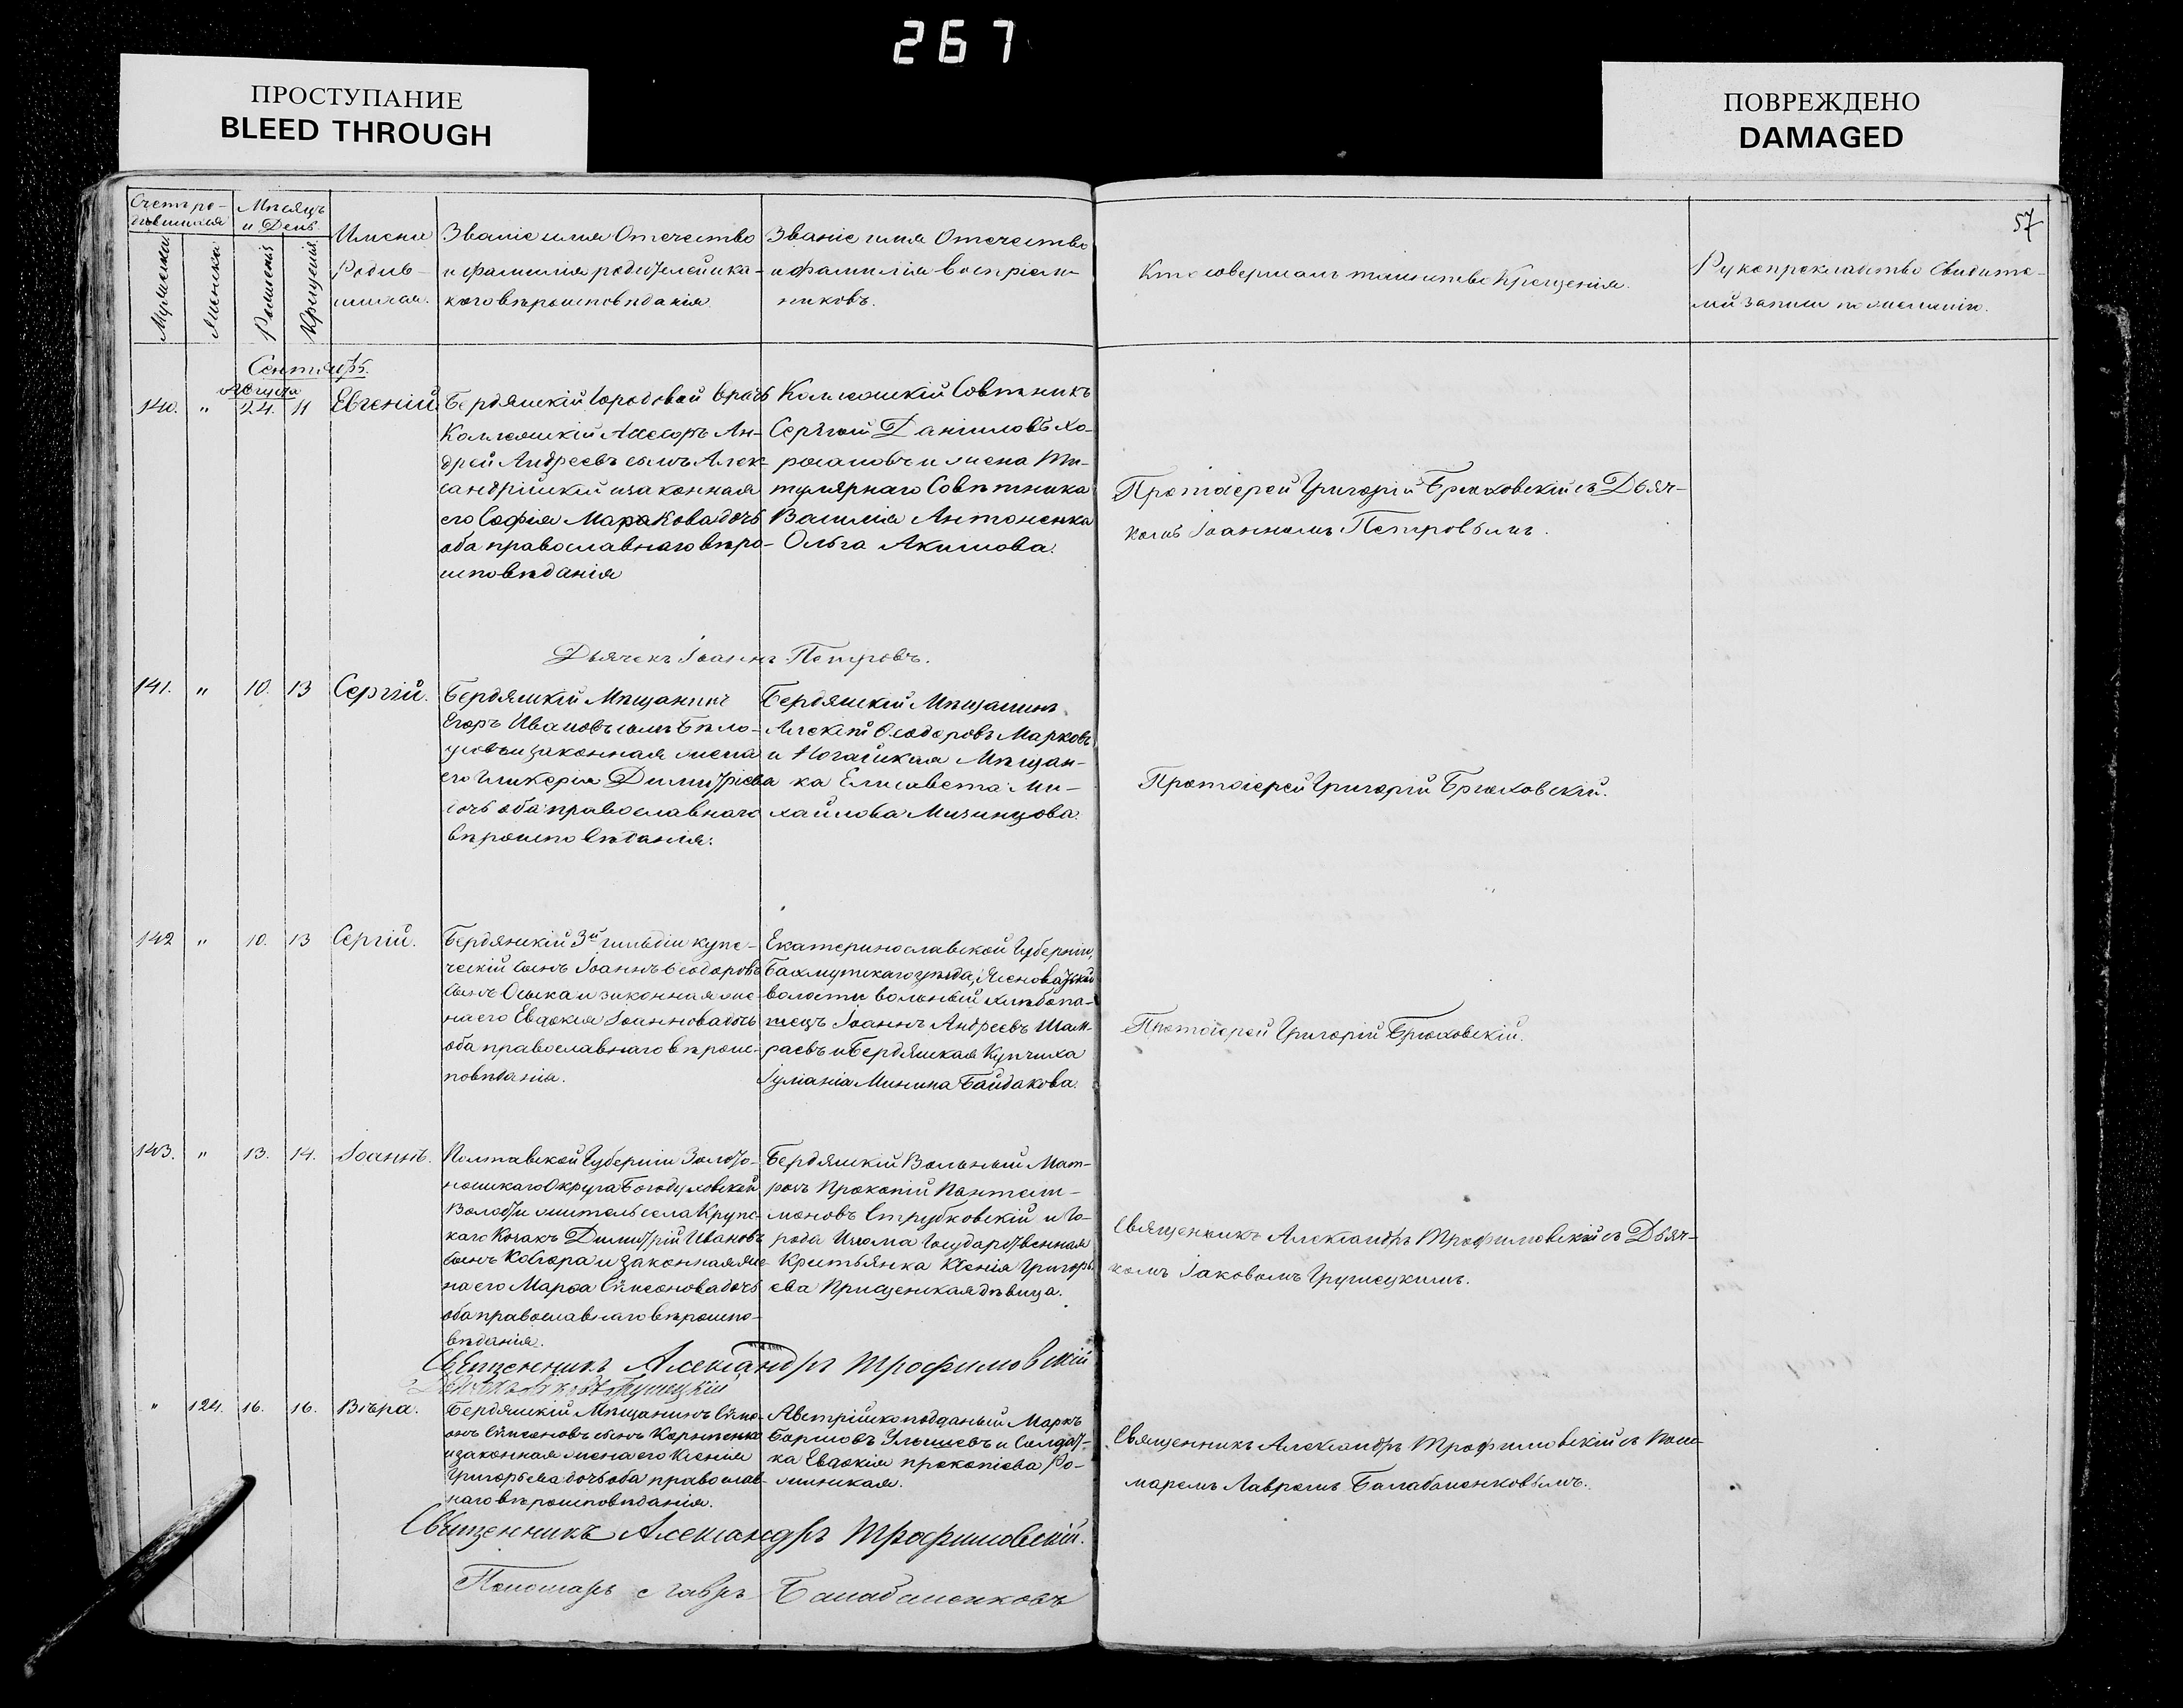 267
ПРОСТУПАНИЕ
BLEED THROUGH
ПОВРЕЖДЕНО
DAMAGED
57
Счетъ ро-
дившихся
Мужеска
Женска
Мѣсяцъ
и День
Рожденія
Крещенія
Имена
Родив-
шихся.
Званіе имя Отечество
и фамилія родителей и ка-
кого вѣроисповѣданія
Званіе имя Отечество
и фамилія воспріем-
никовъ.
Кто совершалъ таинство Крещенія.
Рукоприкладство Свидѣте-
лей записи по желанію.
Сентябрь.
Августа
140. " 24. 11 Евгеній
Бердянскій Городовой врачъ
Коллежскій Ассесоръ Ан-
дрей Андреевъ сынъ Алек-
сандрійскій и законная
его Софія Маркова дочь
оба православнаго вѣро-
исповѣданія
Коллежскій Совѣтникъ
Сергѣй Даниловъ Хо-
и жена Ти-
тулярнаго Совѣтника
Василія Антоненка
Ольга Акимова.
Протоіерей Григорій Брюховскій съ Дьяч-
комъ Іоанномъ Петровымъ.
Дьячекъ Іоаннъ Петровъ.
141. " 10. 13 Сергій.
Бердянскій Мѣщанинъ
Егоръ Ивановъ сынъ Бѣло-
усовъ и законная жена
его Гликерія Димитріева
дочь оба православнаго
вѣроисповѣданія.
Бердянскій Мѣщанинъ
Алексѣй Ѳеодоровъ Марковъ
и Ногайская Мѣщан-
ка Елисавета Ми-
хайлова Мизинцова.
Протоіерей Григорій Брюховскій.
142 " 10. 13 Сергій.
Бердянскій 3й гильдіи купе-
ческій сынъ Іоаннъ Ѳеодоровъ
сынъ Осыка и законная же-
на его Евдокія Іоаннова дочь
оба православнаго вѣроис-
повѣданія.
Екатеринославской Губерніи,
Бахмутскаго уѣзда, Ясеноватской
волости вольный хлѣбопа-
шецъ Іоаннъ Андреевъ Шам-
раевъ и Бердянская Купчиха
Іуліанія Минина Байдакова.
Протоіерей Григорій Брюховскій.
143. " 13. 14. Іоаннъ.
Полтавской Губерніи Золото-
ношскаго Округа Богодуховской
Волости житель села Крупс-
каго Козакъ Димитрій Ивановъ
сынъ Кобзора и законная же-
на его Марѳа Симеонова дочь
оба православнаго вѣроиспо-
вѣданія.
Бердянскій Вольный Мат-
росъ Прокопій Пантели-
моновъ Струбковскій и Го-
рода Изюма Государственная
Крестьянка Ксенія Григорь-
ева Прищенская дѣвица.
Священникъ Александръ Трофимовскій съ Дьяч-
комъ Іаковомъ Грушецкимъ.
Священникъ Александръ Трофимовскій
Дьячекъ Іаковъ Грушецкій
" 124. 16. 16. Вѣра.
Бердянскій Мѣщанинъ Симе-
онъ Симеоновъ сынъ Корніенко
и законная жена его Ксенія
Григорьева дочь оба православ-
наго вѣроисповѣданія.
Австрійскоподданый Марко
Борисовъ и Солдат-
ка Евдокія Прокопіева Ро-
минская.
Священникъ Александръ Трофимовскій съ Поно-
маремъ Лавромъ Балабаненковымъ.
Священникъ Александръ Трофимовскій.
Пономарь Лавръ Балабаненковъ